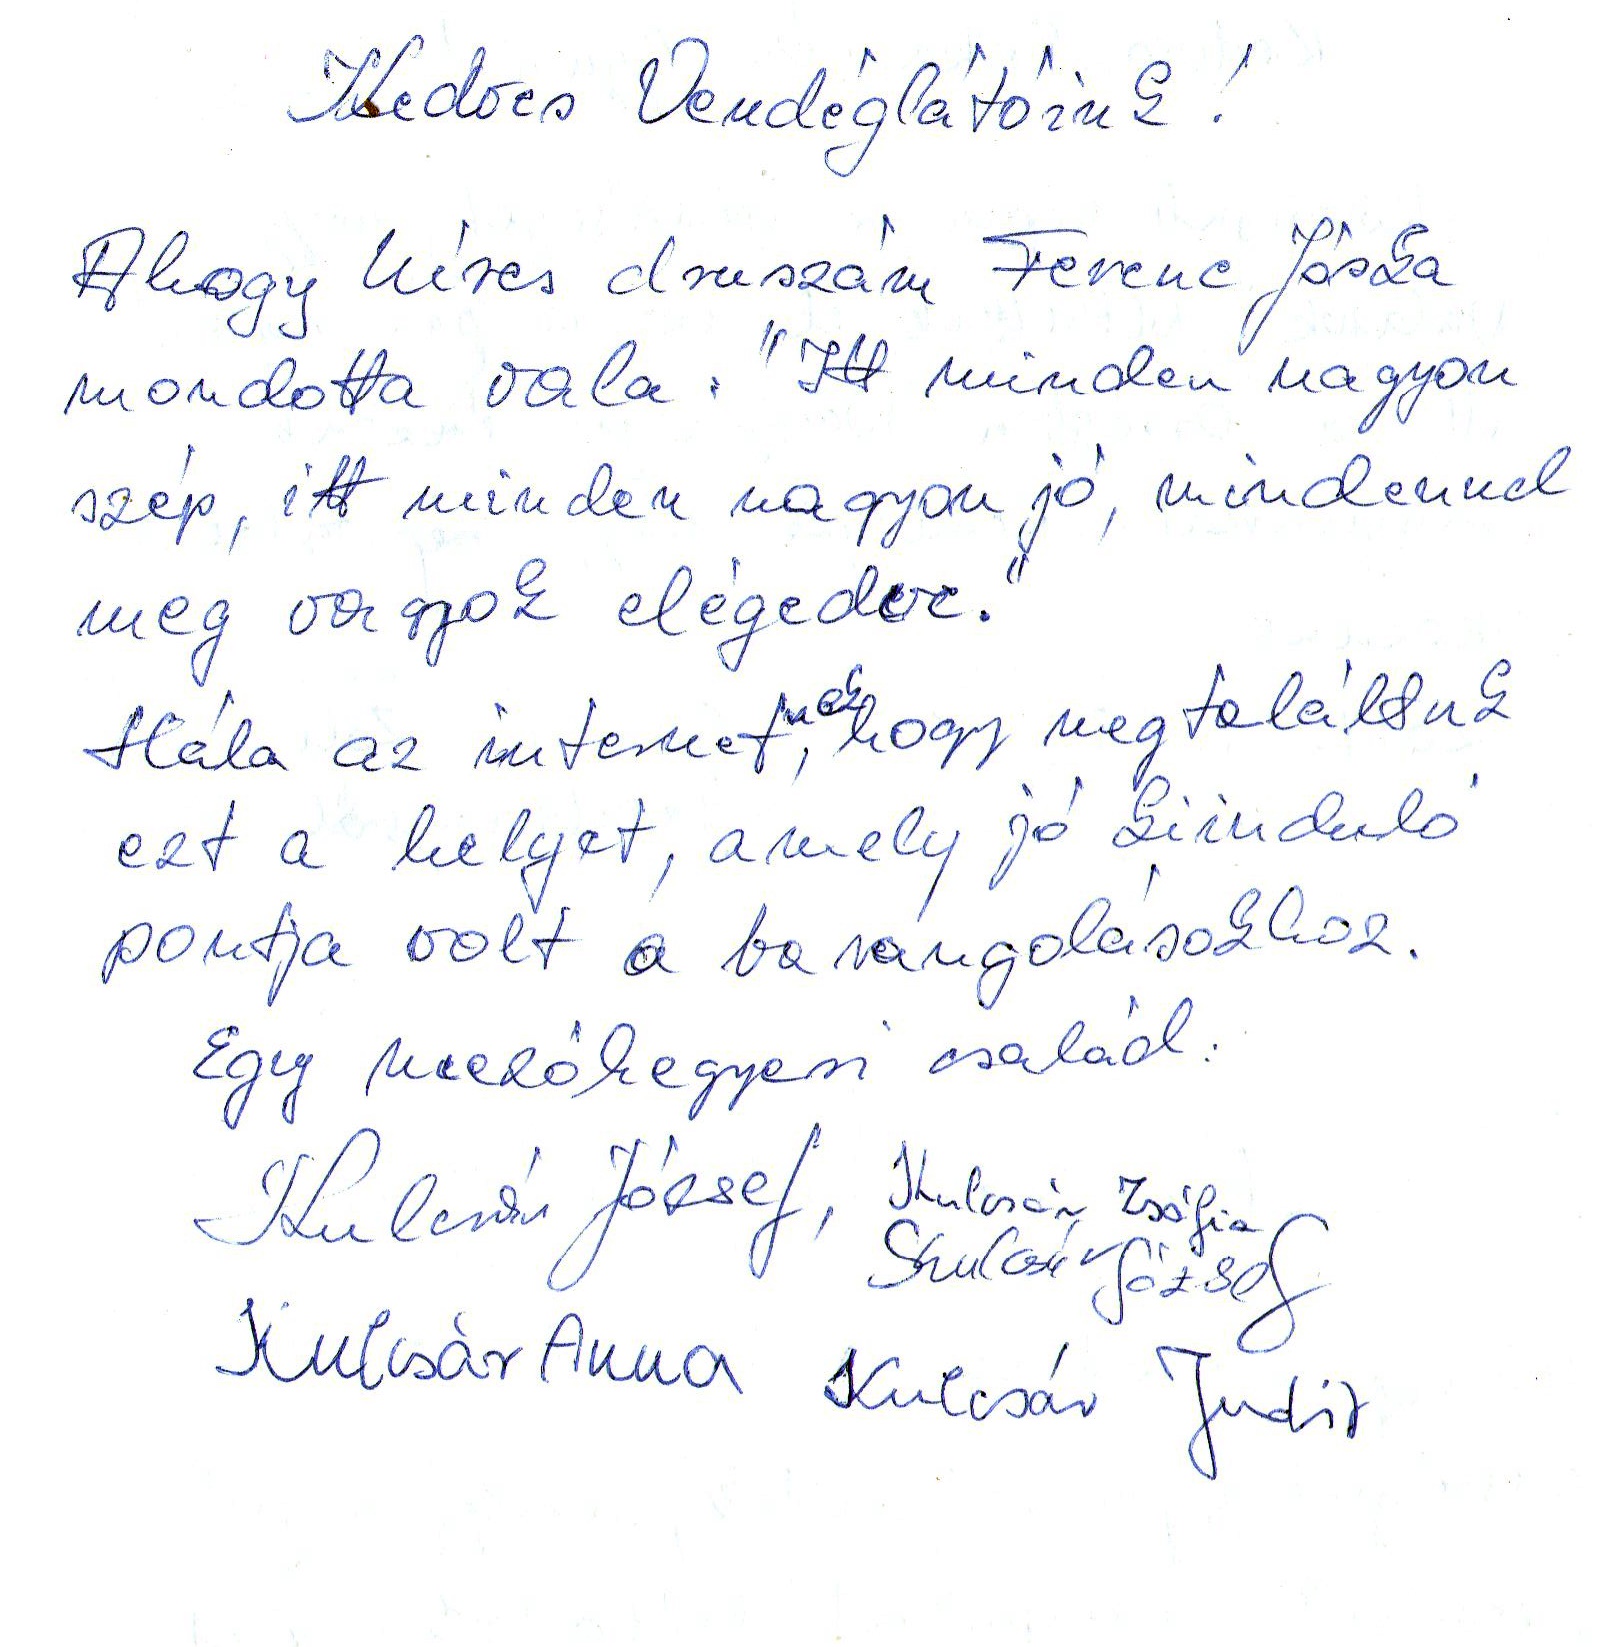 Kedves Vendéglátóink!
Ahogy híres druszám Ferenc Jóska
mondotta vala: "Itt minden nagyon
szép, itt minden nagyon jó, mindennel
meg vagyok elégedve."
Hála az internetnek, hogy megtaláltuk
ezt a helyet, amely jó kiinduló
pontja volt a barangolásokhoz.
Egy mezőhegyesi család:
Kulcsár József, Kulcsár Zsófia
Kulcsár József
Kulcsár Anna Kulcsár Judit